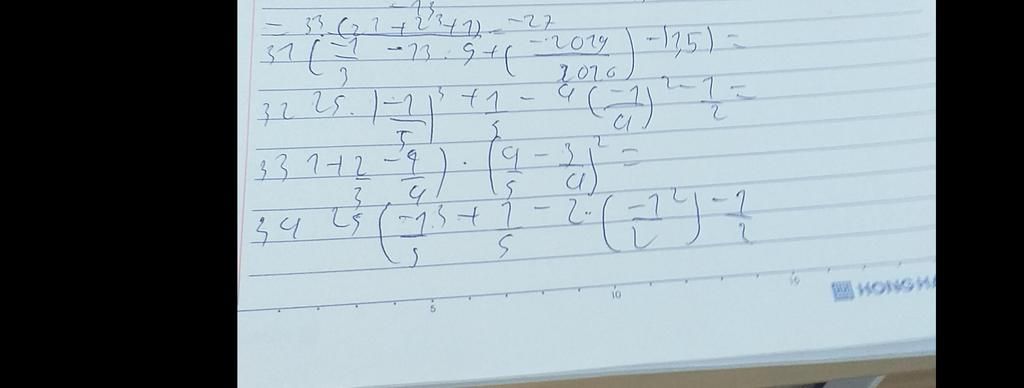 -13
= 33 (3^2 + 2^3 + 1) = -27
31 ( -1/3 - 13 . 9 + ( -2019/2020 ) - |3,5| =
32 25 . ( -1/5 )^3 + 1/5 - 4 ( -1/4 )^2 - 1/2 =
33 1 + 2/3 - 9/4 ) . ( 4/5 - 3/4 )^2 =
34 25 ( -1/5 ^3 + 1/5 - 2 . ( -1/2 ^2 ) - 1/2
5 10
HONG HA